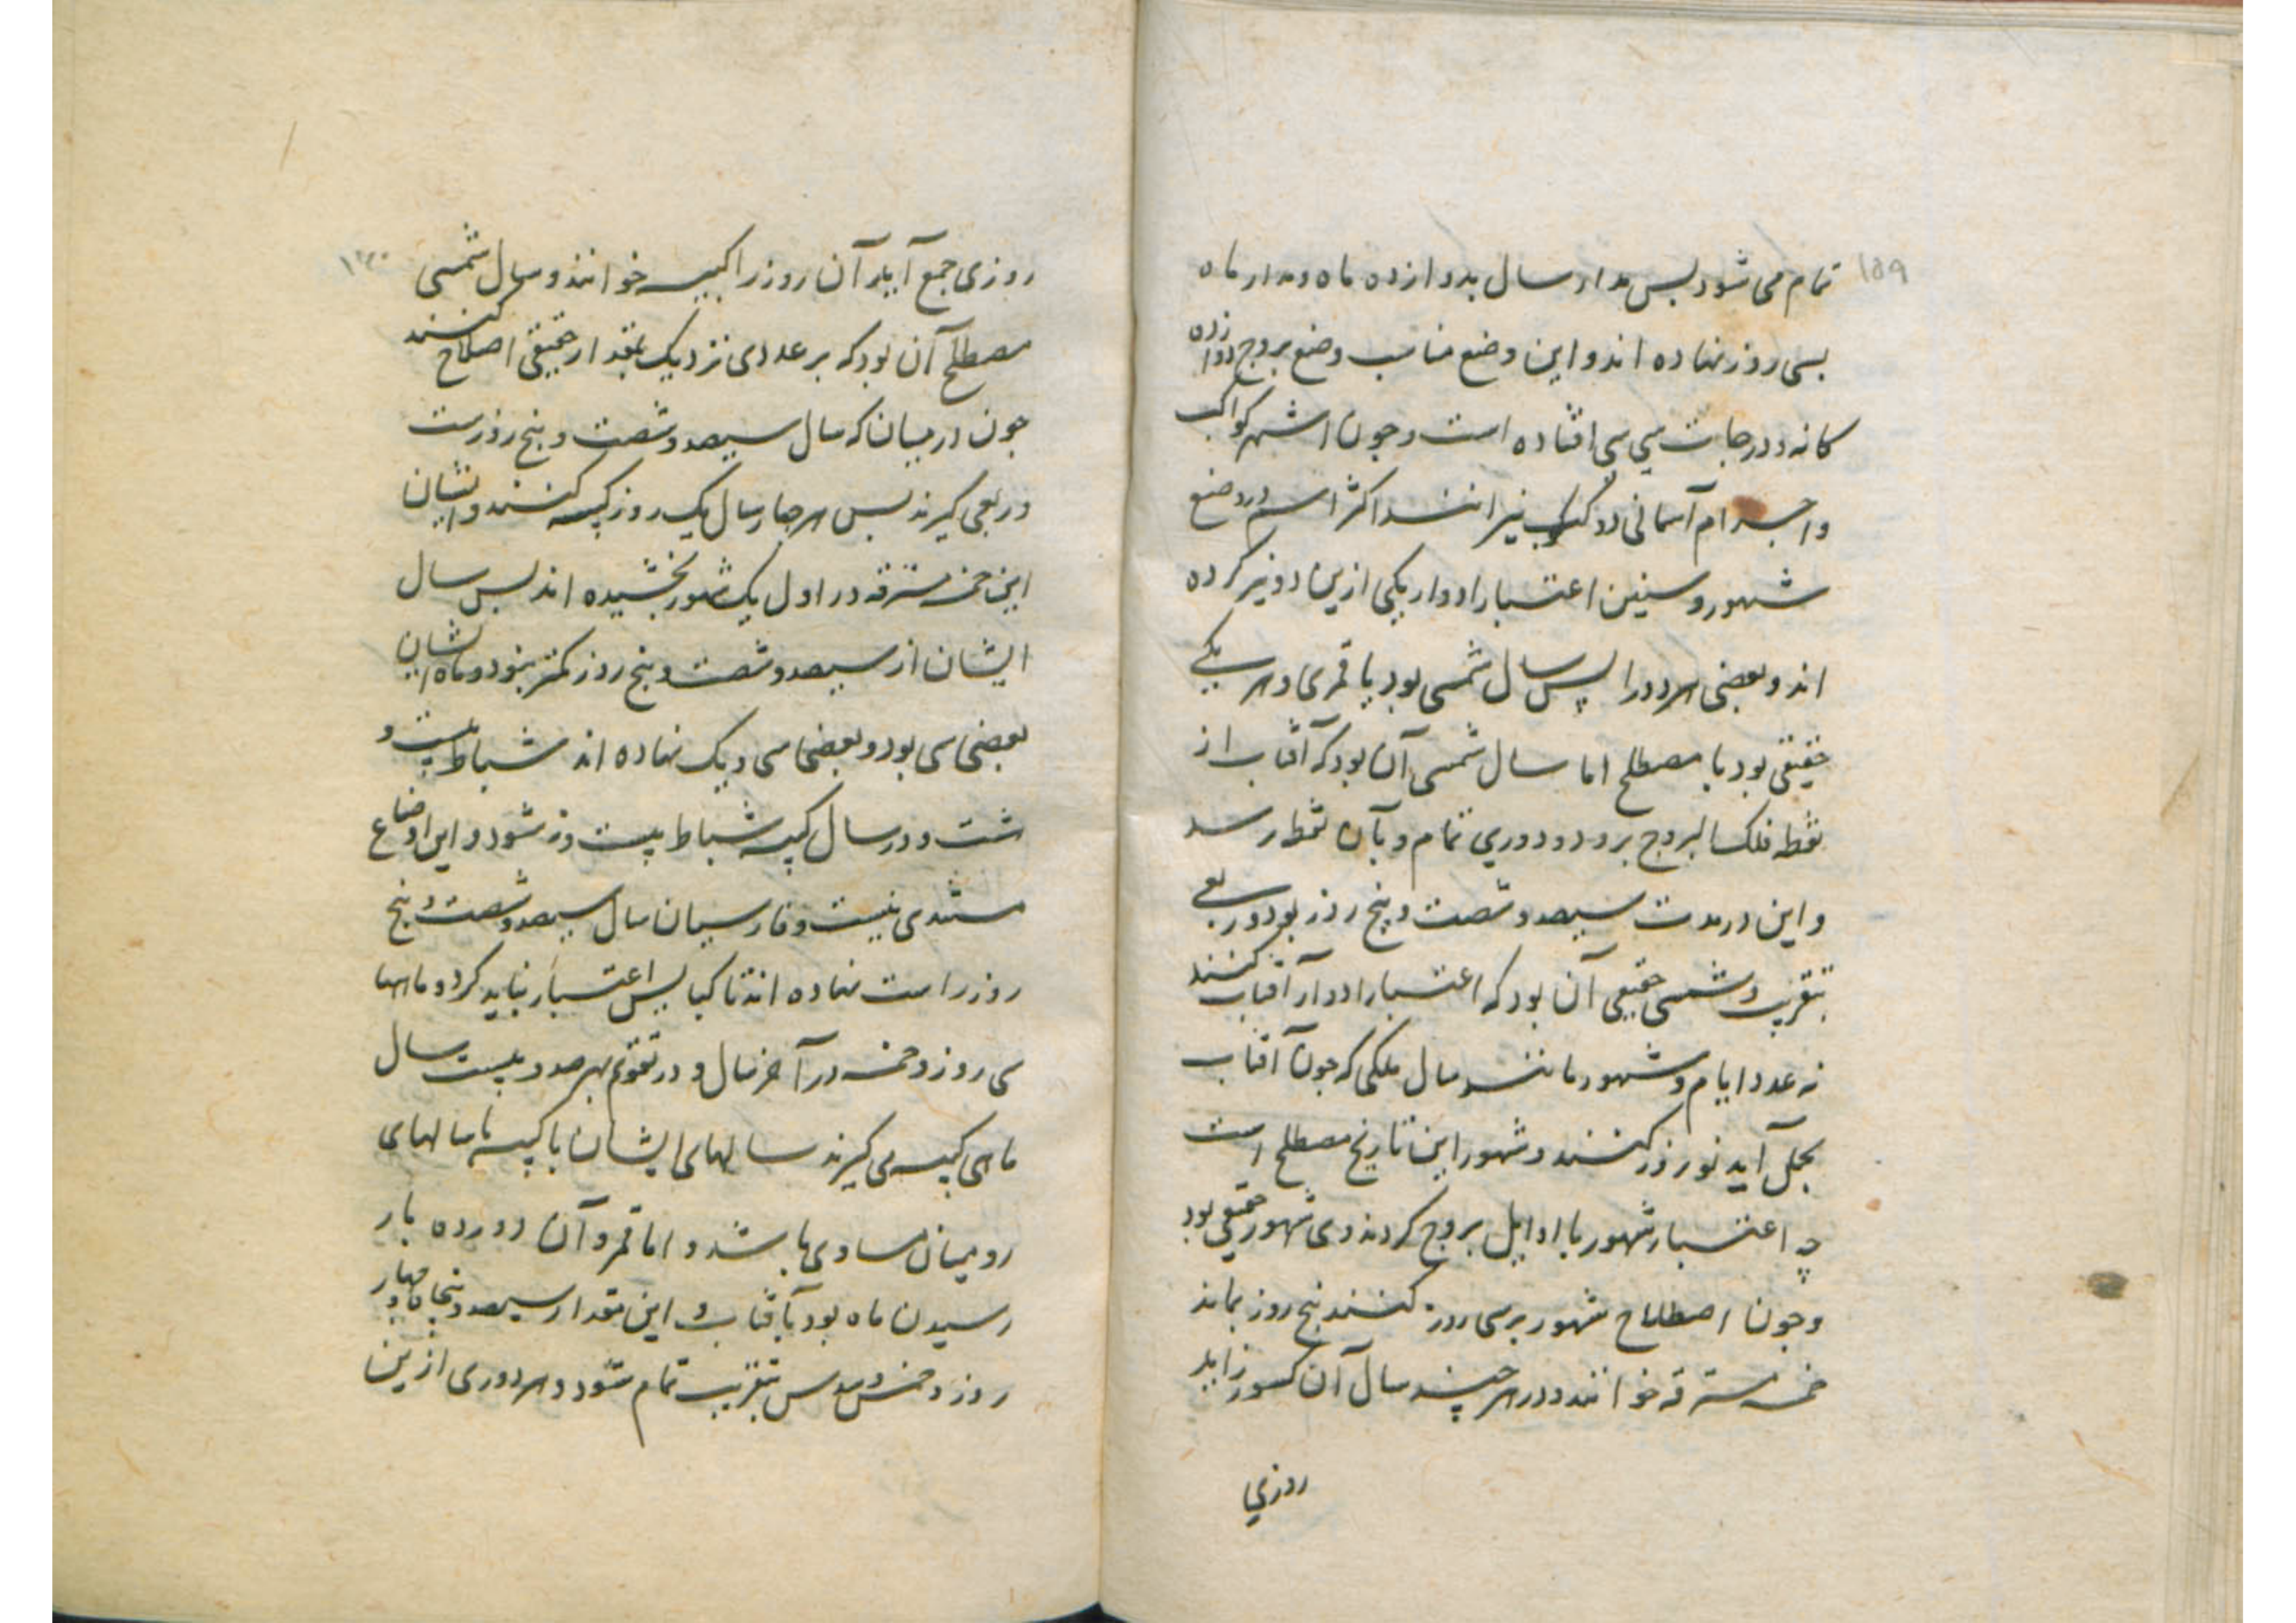 ۱۵۹
تمام می شود بس مدار سال بدوازده ماه و مدار ماه
بسی روز نهاده اند و این وضع مناسب وضع بروج دوازده
کانه و درجات سی سی افتاده است و جون اشهر کواکب
و اجرام آسمانی دو کوکب نیرانند اکثر امم در وضع
شهور و سنین اعتبار ادوار یکی ازین دو نیر کرده
اند و بعضی هر دو را پس سال شمسی بود یا قمری و هر یکی
حقیقی بود یا مصطلح اما سال شمسی آن بود که آفتاب از
نقطه فلک البروج برود و دوری تمام و بآن نقطه رسد
و این در مدت سیصد و شصت و پنج روز بود و ربعی
بتقریب و شمسی حقیقی آن بود که اعتبار ادوار آفتاب کنند
نه عدد ایام و شهور مانند سال ملکی که جون آفتاب
بحمل آید نوروز کنند و شهور این تاریخ مصطلح است
چه اعتبار شهور با اوایل بروج کردندی شهور حقیقی بود
و جون اصطلاح شهور بر سی روز کنند پنج روز بماند
خمسه مسترقه خوانند و در هر چند سال آن کسور زاید
روزی
۱۶۰
روزی جمع آید آن روز را کبیسه خوانند و سال شمسی
مصطلح آن بود که بر عددی نزدیک بمقدار حقیقی اصطلاح کنند
جون رومیان که سال سیصد و شصت و پنج روزست
و ربعی کیرند بس هر جهار سال یک روز کبیسه کنند و ایشان
این خمسه مسترقه در اول یک شهور بخشیده اند بس سال
ایشان از سیصد و شصت و پنج روز کمتر نبود و ماه ایشان
بعضی سی بود و بعضی سی و یک نهاده اند شباط بیست و
هشت و در سال کبیسه شباط بیست و نه شود و این اوضاع
مستندی نیست و فارسیان سال سیصد و شصت و پنج
روز راست نهاده اند تا کبایس اعتبار نباید کرد و ماهها
سی روز و خمسه در آخر سال و در تقویم بهر صد و بیست سال
ماهی کبیسه می کیرند سالهای ایشان با کبیسه با سالهای
رومیان مساوی باشد و اما قمر و آن دوازده بار
رسیدن ماه بود بآفتاب و این مقدار سیصد و پنجاه و چهار
روز و خمس و سدس بتقریب تمام شود و هر دوری ازین